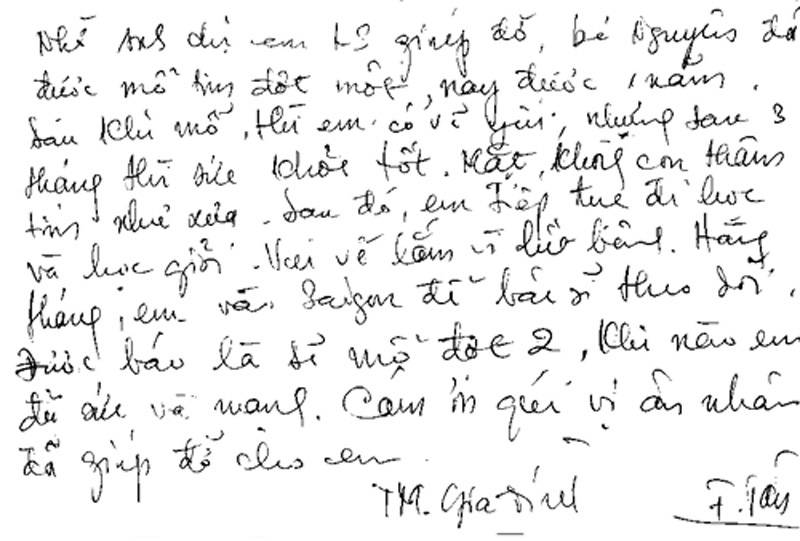 Nhờ anh chị em LS giúp đỡ, bé Nguyên đã
được mổ tim đợt một, nay được 1 năm.
Sau khi mổ, thì em có vẻ yếu, nhưng sau 3
tháng thì sức khỏe tốt. Mặt không còn thâm
tím như xưa. Sau đó, em tiếp tục đi học
và học giỏi. Vui vẻ lắm vì hết bệnh. Hằng
tháng, em vào Saigon để bác sĩ theo dõi.
Được báo là sẽ mổ đợt 2, khi nào em
đủ sức và mang. Cám ơn quí vị ân nhân
đã giúp đỡ cho em.
TM. Gia đình F. Tân